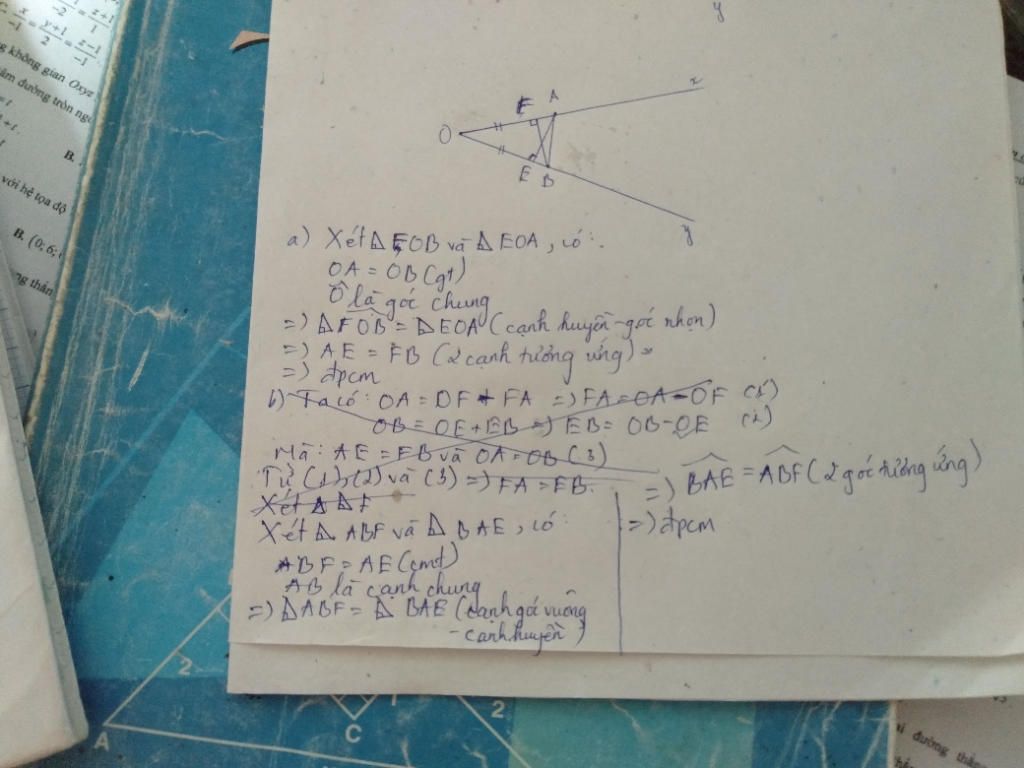 x/-1 = y+1/2 = z-1/-1
g không gian Oxyz
âm đường tròn ngo
B.
với hệ tọa độ
B. (0; 6;
ng thẳn
y
O
F
A
x
E
B
y
a) Xét Δ FOB và Δ EOA, có:
OA = OB (gt)
Ô là góc chung
=) Δ FOB = Δ EOA (cạnh huyền - góc nhọn)
=) AE = FB (2 cạnh tương ứng)
=) đpcm
b) Ta có: OA = OF + FA =) FA = OA - OF (1)
OB = OE + EB =) EB = OB - OE (2)
Mà: AE = FB và OA = OB (3)
Từ (1), (2) và (3) =) FA = EB.
Xét Δ ΔF
Xét Δ ABF và Δ BAE, có:
BF = AE (cmt)
AB là cạnh chung
=) Δ ABF = Δ BAE (cạnh góc vuông
- cạnh huyền)
=) BAE = ABF (2 góc tương ứng)
=) đpcm
2
1
2
A
C
ai đường thẳn